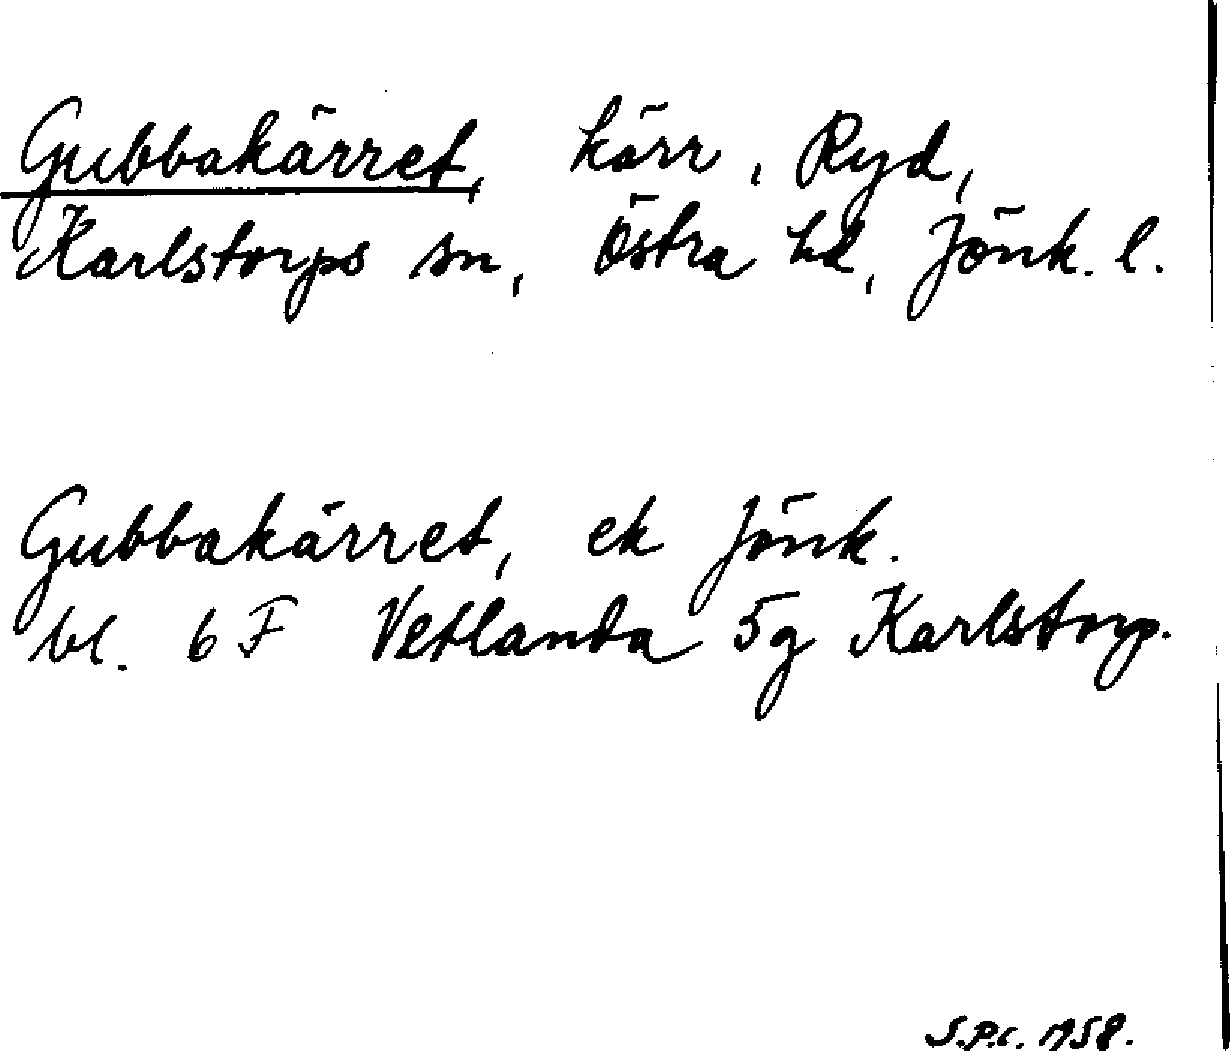 Gubbakärret, kärr, Ryd,
Karlstorps sn, Östra hd, Jönk. l.
Gubbakärret, ek Jönk.
bl. 6 F Vetlanda 5g Karlstorp.
S.P.C. 1958.